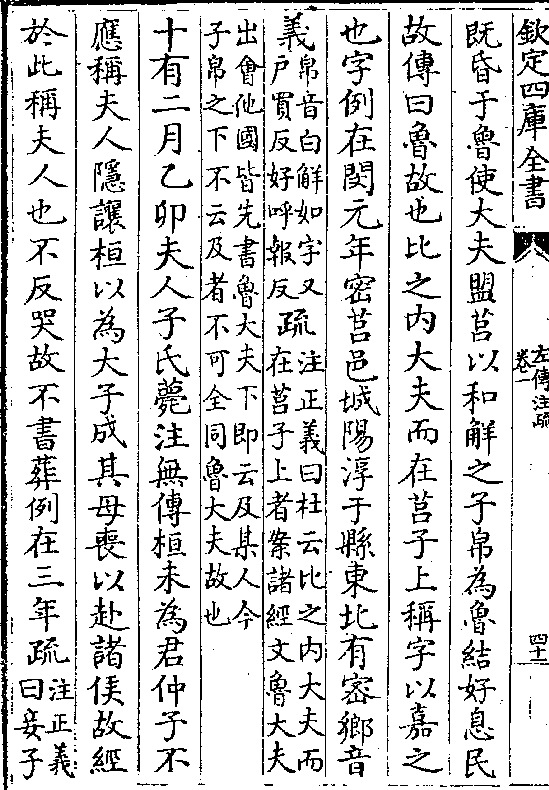 欽定四庫全書
左傳注疏
卷一
四十一
既昏于魯使大夫盟莒以和解之子帛為魯結好息民
故傳曰魯故也比之内大夫而在莒子上稱字以嘉之
也字例在閔元年密莒邑城陽淳于縣東北有密鄉音
義帛音白解如字又戶買反好呼報反疏注正義曰杜云比之内大夫而在莒子上者案諸經文魯大夫
出會他國皆先書魯大夫下即云及某人今子帛之下不云及者不可全同魯大夫故也
十有二月乙卯夫人子氏薨注無傳桓未為君仲子不
應稱夫人隱讓桓以為大子成其母喪以赴諸侯故經
於此稱夫人也不反哭故不書葬例在三年疏注正義曰妾子